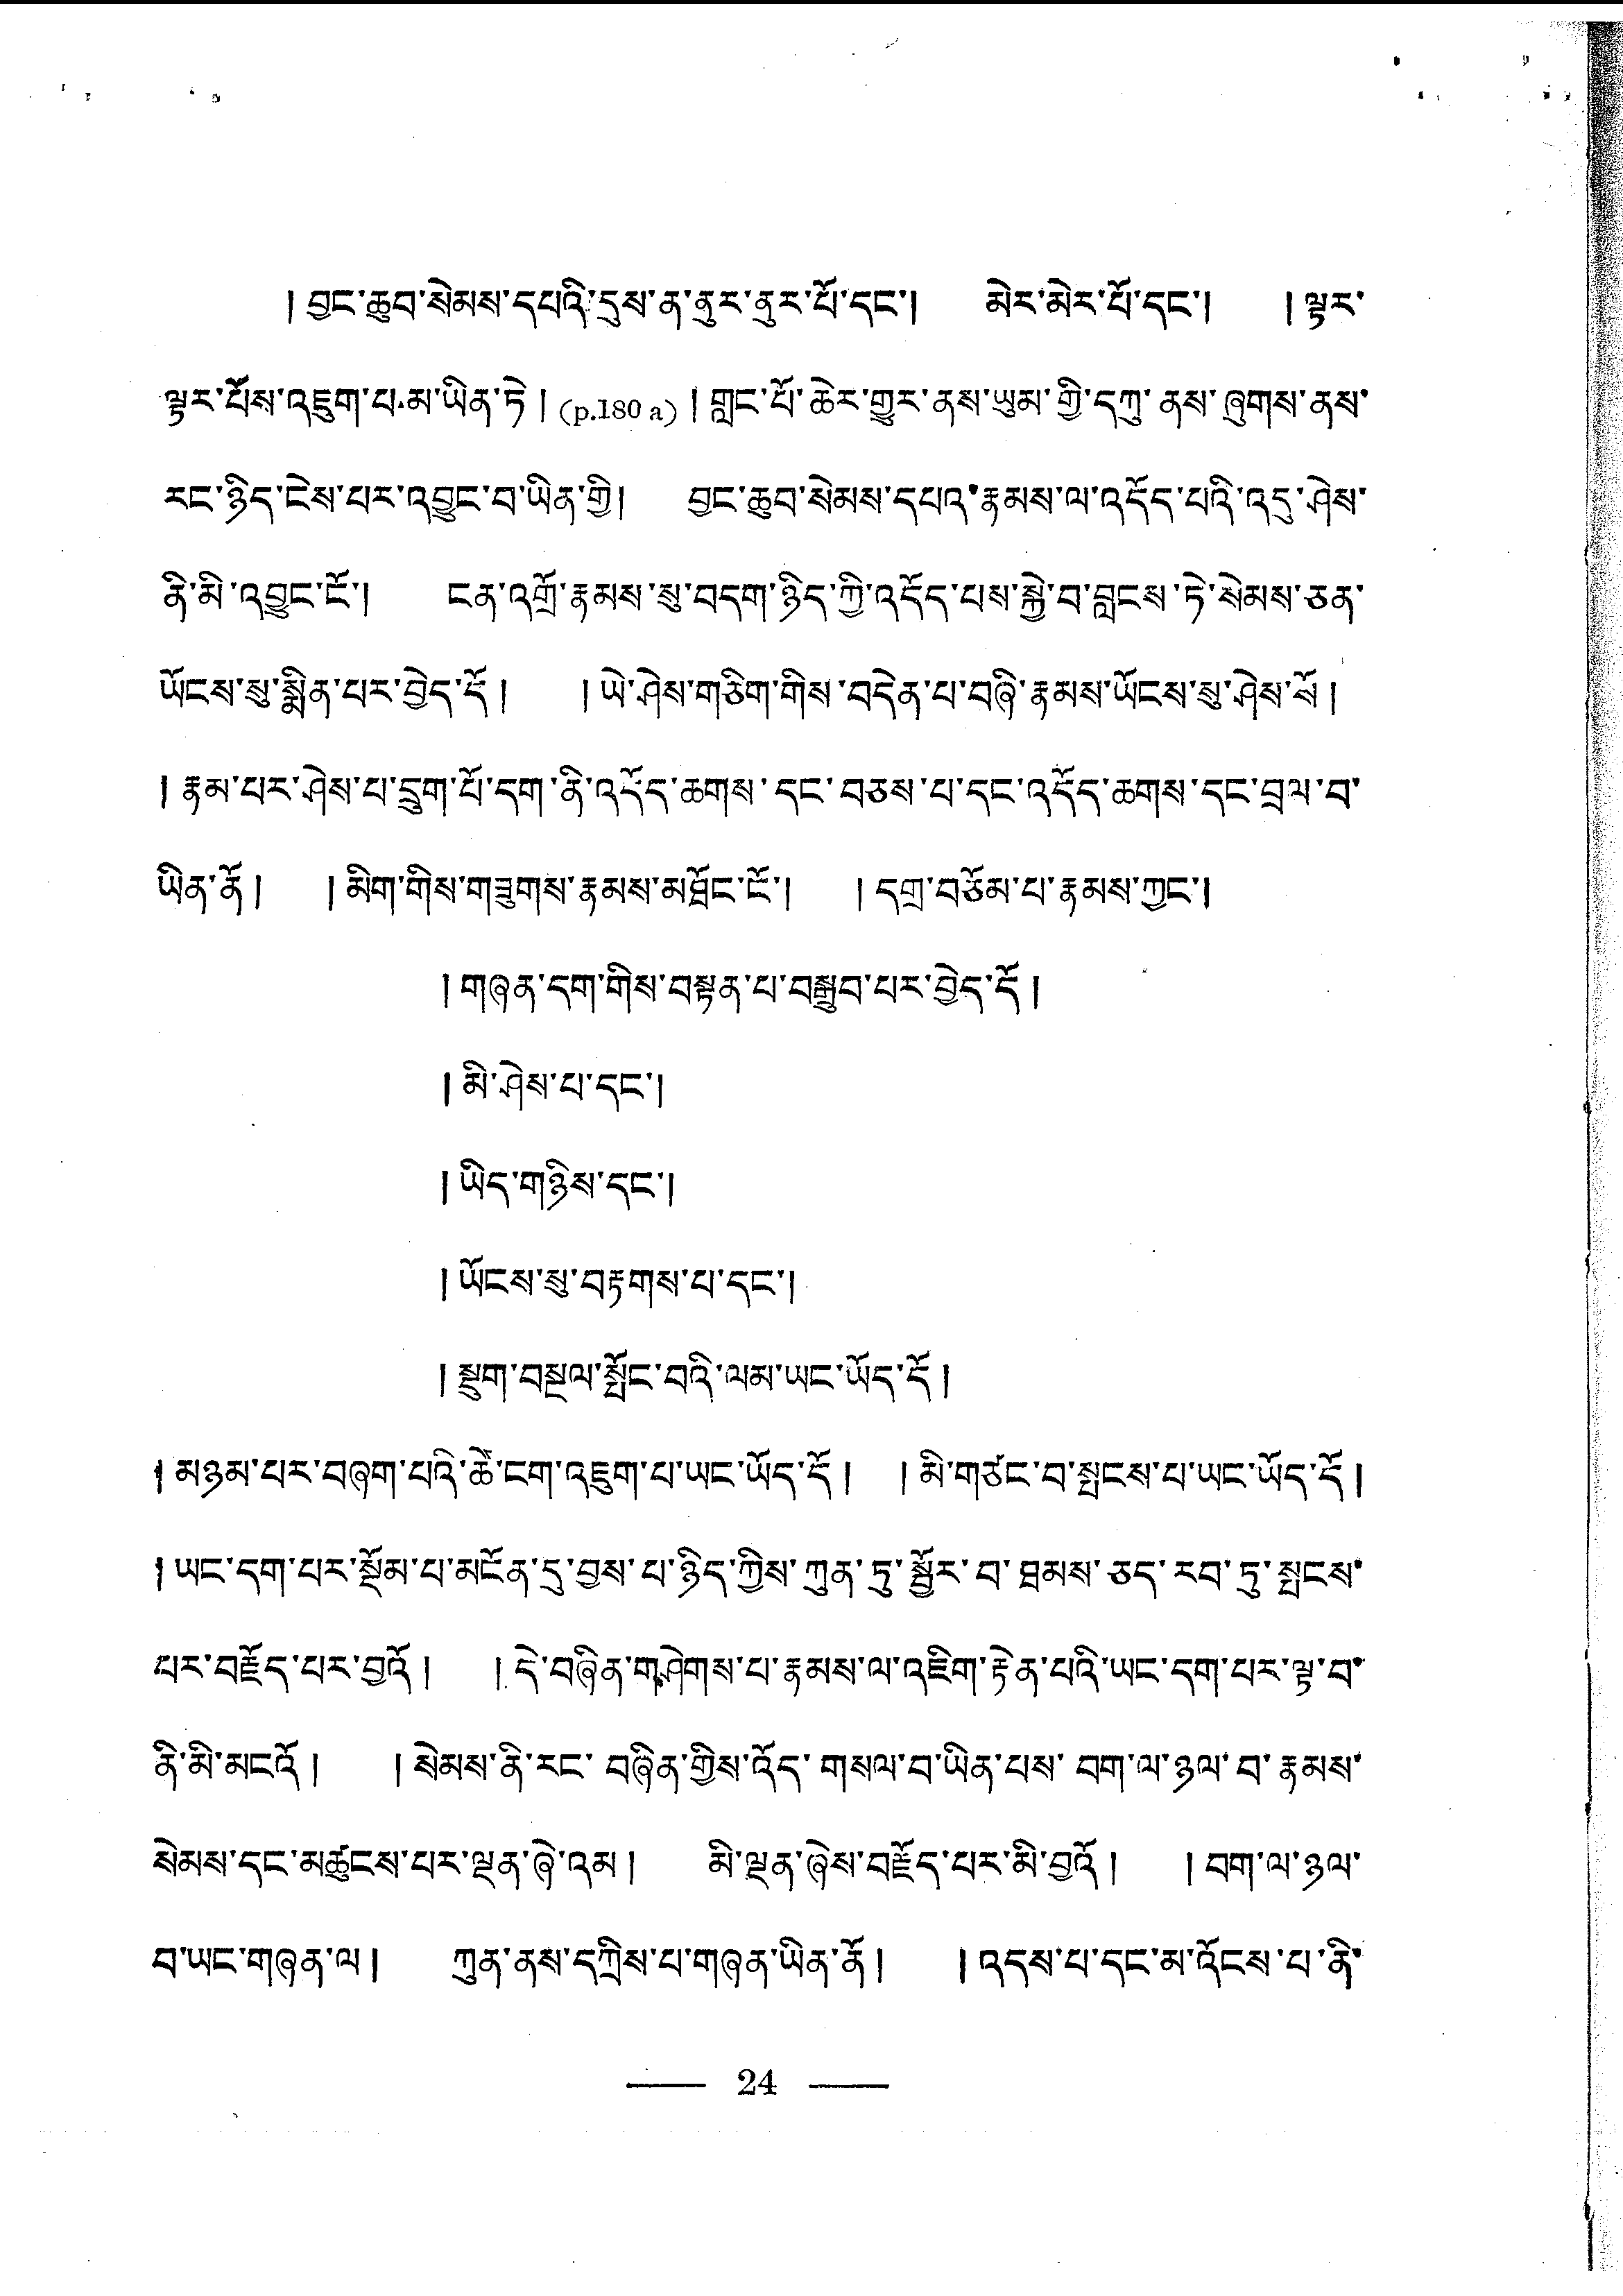 ། བྱང་ཆུབ་སེམས་དཔའི་དུས་ན་ནུར་ནུར་པོ་དང་། མེར་མེར་པོ་དང་། ། ལྟར་
ལྟར་པོས་འཇུག་པ་མ་ཡིན་ཏེ། (p.180 a) ། གླང་པོ་ཆེར་གྱུར་ནས་ཡུམ་གྱི་དཀུ་ནས་ཞུགས་ནས་
རང་ཉིད་ངེས་པར་འབྱུང་བ་ཡིན་གྱི། བྱང་ཆུབ་སེམས་དཔའ་རྣམས་ལ་འདོད་པའི་འདུ་ཤེས་
ནི་མི་འབྱུང་ངོ་། ངན་འགྲོ་རྣམས་སུ་བདག་ཉིད་ཀྱི་འདོད་པས་སྐྱེ་བ་བླངས་ཏེ་སེམས་ཅན་
ཡོངས་སུ་སྨིན་པར་བྱེད་དོ། ། ཡེ་ཤེས་གཅིག་གིས་བདེན་པ་བཞི་རྣམས་ཡོངས་སུ་ཤེས་སོ།
། རྣམ་པར་ཤེས་པ་དྲུག་པོ་དག་ནི་འདོད་ཆགས་དང་བཅས་པ་དང་འདོད་ཆགས་དང་བྲལ་བ་
ཡིན་ནོ། ། མིག་གིས་གཟུགས་རྣམས་མཐོང་ངོ་། ། དགྲ་བཅོམ་པ་རྣམས་ཀྱང་།
། གཞན་དག་གིས་བསྟན་པ་བསྒྲུབ་པར་བྱེད་དོ།
། མི་ཤེས་པ་དང་།
། ཡིད་གཉིས་དང་།
། ཡོངས་སུ་བརྟགས་པ་དང་།
། སྡུག་བསྔལ་སྤོང་བའི་ལམ་ཡང་ཡོད་དོ།
། མཉམ་པར་བཞག་པའི་ཚེ་ངག་འཇུག་པ་ཡང་ཡོད་དོ། ། མི་གཙང་བ་སྤངས་པ་ཡང་ཡོད་དོ།
། ཡང་དག་པར་སྡོམ་པ་མངོན་དུ་བྱས་པ་ཉིད་ཀྱིས་ཀུན་ཏུ་སྦྱོར་བ་ཐམས་ཅད་རབ་ཏུ་སྤངས་
པར་བརྗོད་པར་བྱའོ། ། དེ་བཞིན་གཤེགས་པ་རྣམས་ལ་འཇིག་རྟེན་པའི་ཡང་དག་པར་ལྟ་བ་
ནི་མི་མངའོ། ། སེམས་ནི་རང་བཞིན་གྱིས་འོད་གསལ་བ་ཡིན་པས་བག་ལ་ཉལ་བ་རྣམས་
སེམས་དང་མཚུངས་པར་ལྡན་ཞེ་འམ། མི་ལྡན་ཞེས་བརྗོད་པར་མི་བྱའོ། ། བག་ལ་ཉལ་
བ་ཡང་གཞན་ལ། ཀུན་ནས་དཀྲིས་པ་གཞན་ཡིན་ནོ། ། འདས་པ་དང་མ་འོངས་པ་ནི་
— 24 —